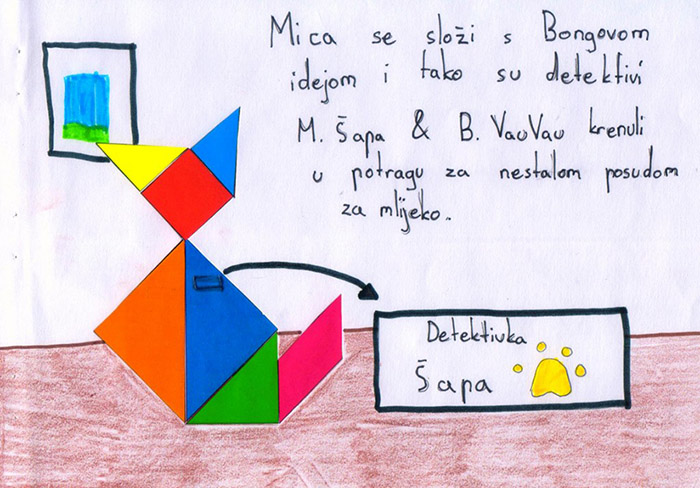 Mica se složi s Bongovom
idejom i tako su detektivi
M. Šapa & B. VauVau krenuli
u potragu za nestalom posudom
za mlijeko.
Detektivka
Šapa